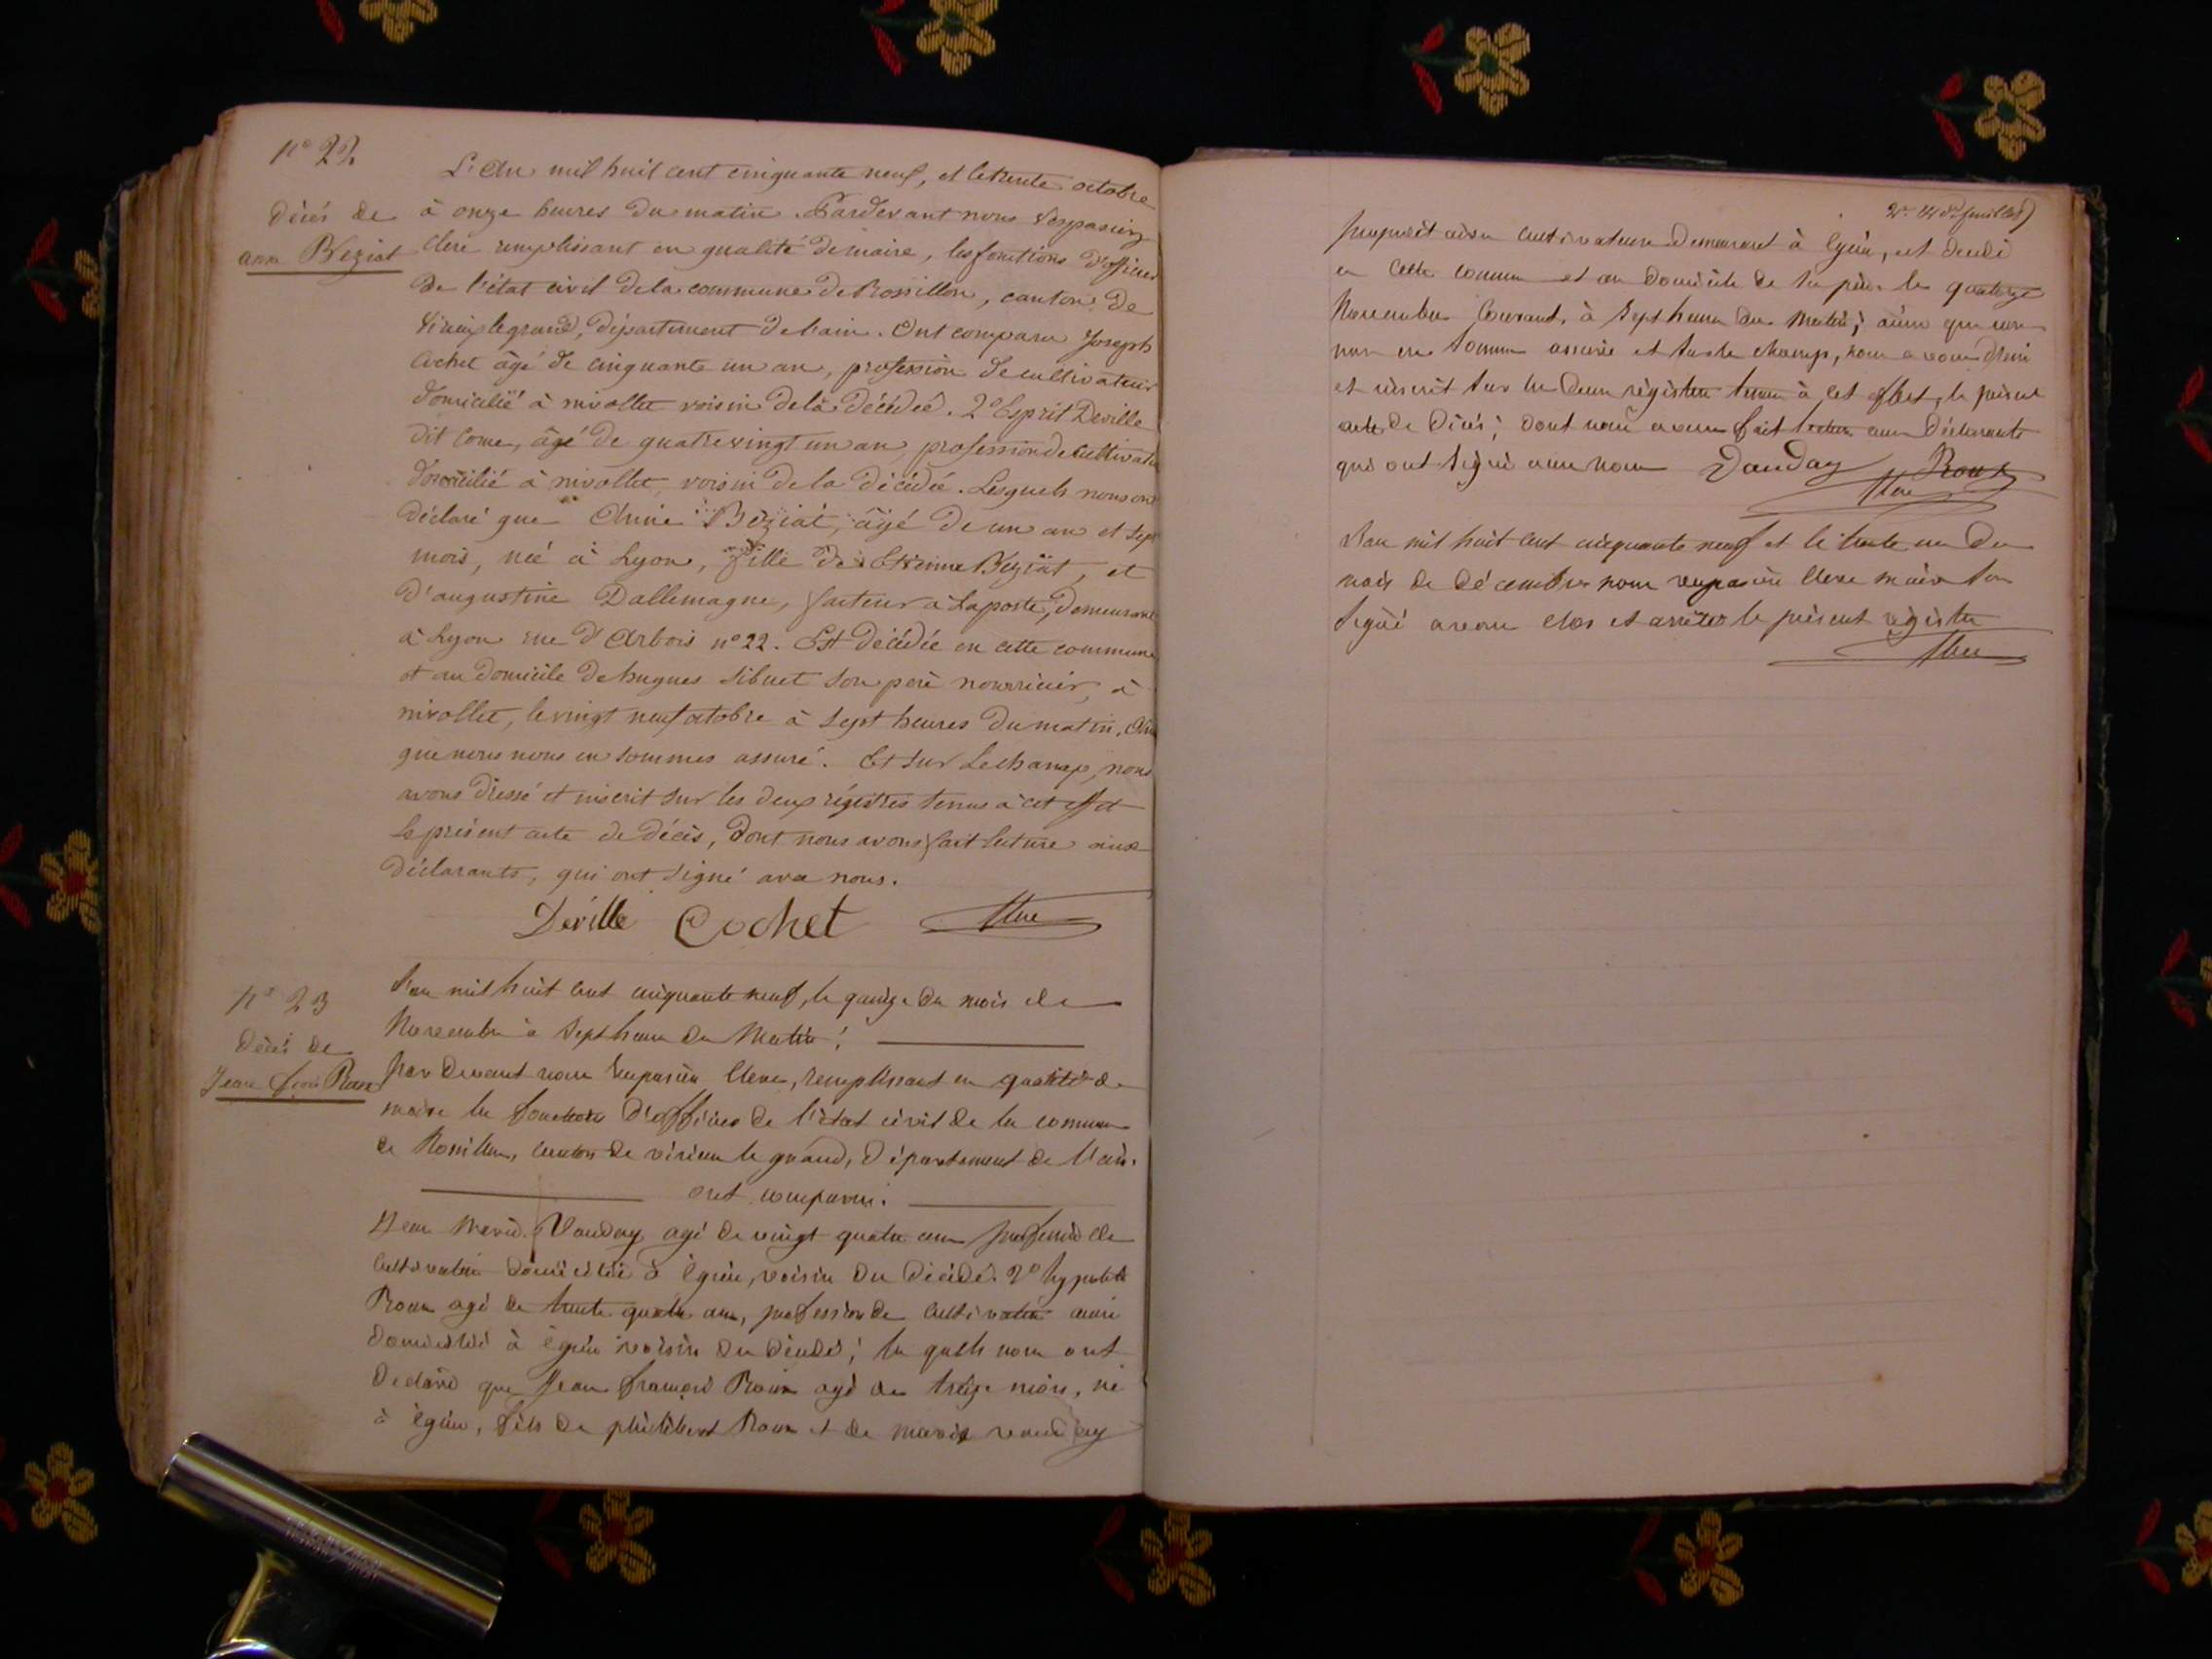 n° 22
Décés de
anne Beziat
L'An mil huit cent cinquante neuf, et le trente octobre
à onze heures du matin. Pardevant nous Vespasien
Clere remplissant en qualité de maire, les fonctions d'officier
de l'état civil de la commune de Rossillon, canton de
Virieu le grand, département de l'ain. Ont comparu Joseph
Cochet âgé de cinquante un an, profession de cultivateur
domicilié à nivollet voisin de la décédée. 2° Esprit Deville
dit Come, âgé de quatrevingt un an, profession de cultivate
domicilié à nivollet, voisin de la décédée. Lesquels nous ont
déclaré que Anne Beziat, âgé de un an et sept
mois, neé à Lyon, fille de Etienne Beziat, et
d'augustine Dallemagne, facteur à la poste, demeurant
à Lyon rue d'Arbois n° 22. Est décédée en cette commune
et au domicile de hugues Sibuet son pere nourricier, à
nivollet, le vingt neuf octobre à sept heures du matin. Ain
que nous nous en sommes assuré. Et sur le champ, nous
avons dressé et inscrit sur les deux régistres tenus à cet effet
le présent acte de décès, dont nous avons fait lecture aux
déclarants, qui ont signé avec nous.
Déville Cochet Clere
n° 23
Décés de
Jean Roux
L'an mil huit cent cinquante neuf, le quinze du mois de
Novembre à Sept heures du Matin;
par devant nous Vespasien Clere, remplissant en qualité de
maire les fonctions d'officier de l'état civil de la commune
de Rossillon, canton de virieu le grand, département de l'ain.
ont comparu.
Jean Marie Vauday agé de vingt quatre ans profession de
cultivateur domicilié à égieu, voisin du décédé. 2° hypolite
Roux agé de trente quatre ans, profession de cultivateur aussi
domicilié à égieu voisin du décédé; les quels nous ont
déclaré que Jean François Roux agé de treize mois, né
à égieu, fils de philibert Roux et de marie vauday
propriétaires cultivateurs demeurant à égieu, est décédé
en cette commune et au domicile de son père le quatorze
Novembre Courant, à Sept heures du Matin; ainsi que nous
nous en sommes assurés et sur le champ, nous avons dressé
et inscrit sur les deux régistres tenus à cet effet, le présent
acte de Décés; dont nous avons fait lecture aux Déclarants
qui ont signé avec nous Vauday Roux
Clere
L'an mil huit cent cinquante neuf et le trente un du
mois de décembre nous vespasien Clere maire sous
signé avons clos et arrêté le présent régistre
Clere